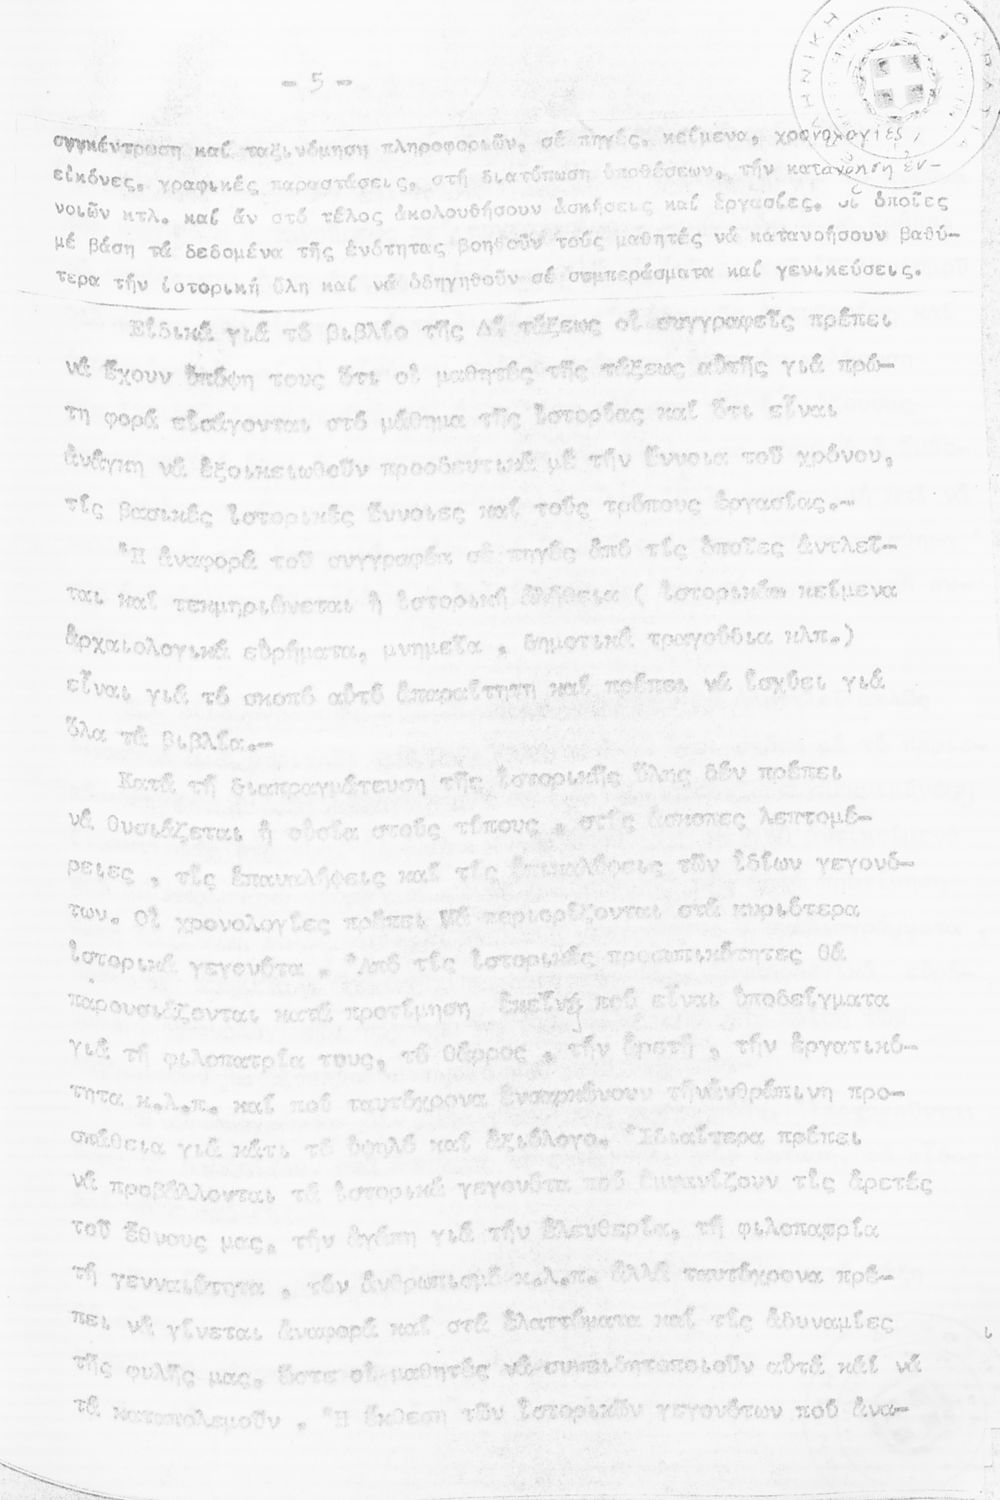 - 5 -
συγκέντρωση καί ταξινόμηση πληροφοριῶν, σέ πηγές, κείμενα, χρονολογίες,
εἰκόνες, γραφικές παραστάσεις, στή διατύπωση ὑποθέσεων, τήν κατανόηση ἐν-
νοιῶν κτλ. καί ἄν στό τέλος ἀκολουθήσουν ἀσκήσεις καί ἐργασίες, οἱ ὁποῖες
μέ βάση τά δεδομένα τῆς ἑνότητας βοηθοῦν τούς μαθητές νά κατανοήσουν βαθύ-
τερα τήν ἱστορική ὕλη καί νά ὁδηγηθοῦν σέ συμπεράσματα καί γενικεύσεις.
Εἰδικά γιά τό βιβλίο τῆς Δ΄ τάξεως οἱ συγγραφεῖς πρέπει
νά ἔχουν ὑπόψη τους ὅτι οἱ μαθητές τῆς τάξεως αὐτῆς γιά πρώ-
τη φορά εἰσάγονται στό μάθημα τῆς ἱστορίας καί ὅτι εἶναι
ἀνάγκη νά ἐξοικειωθοῦν προοδευτικά μέ τήν ἔννοια τοῦ χρόνου,
τίς βασικές ἱστορικές ἔννοιες καί τούς τρόπους ἐργασίας.-
Ἡ ἀναφορά τοῦ συγγραφέα σέ πηγές ἀπό τίς ὁποῖες ἀντλεῖ-
ται καί τεκμηριώνεται ἡ ἱστορική ἀλήθεια ( ἱστορικά κείμενα
ἀρχαιολογικά εὑρήματα, μνημεῖα , δημοτικά τραγούδια κλπ.)
εἶναι γιά τό σκοπό αὐτό ἀπαραίτητη καί πρέπει νά ἰσχύει γιά
ὅλα τά βιβλία.-
Κατά τή διαπραγμάτευση τῆς ἱστορικῆς ὕλης δέν πρέπει
νά θυσιάζεται ἡ οὐσία στούς τύπους , στίς ἄσκοπες λεπτομέ-
ρειες , τίς ἐπαναλήψεις καί τίς ἐπικαλύψεις τῶν ἰδίων γεγονό-
των. Οἱ χρονολογίες πρέπει νά περιορίζονται στά κυριότερα
ἱστορικά γεγονότα . Ἀπό τίς ἱστορικές προσωπικότητες θά
παρουσιάζονται κατά προτίμηση ἐκεῖνες πού εἶναι ὑποδείγματα
γιά τή φιλοπατρία τους, τό θάρρος , τήν ἀρετή , τήν ἐργατικό-
τητα κ.λ.π. καί πού ταυτόχρονα ἐνσαρκώνουν τήν ἀνθρώπινη προ-
σπάθεια γιά κάτι τό ὑψηλό καί ἀξιόλογο. Ἰδιαίτερα πρέπει
νά προβάλλονται τά ἱστορικά γεγονότα πού ἐμφανίζουν τίς ἀρετές
τοῦ ἔθνους μας, τήν ἀγάπη γιά τήν ἐλευθερία, τή φιλοπατρία
τή γενναιότητα , τόν ἀνθρωπισμό κ.λ.π. ἀλλά ταυτόχρονα πρέ-
πει νά γίνεται ἀναφορά καί στά ἐλαττώματα καί τίς ἀδυναμίες
τῆς φυλῆς μας, ὥστε οἱ μαθητές νά συνειδητοποιοῦν αὐτά καί νά
τά καταπολεμοῦν . Ἡ ἔκθεση τῶν ἱστορικῶν γεγονότων πού ἀνα-